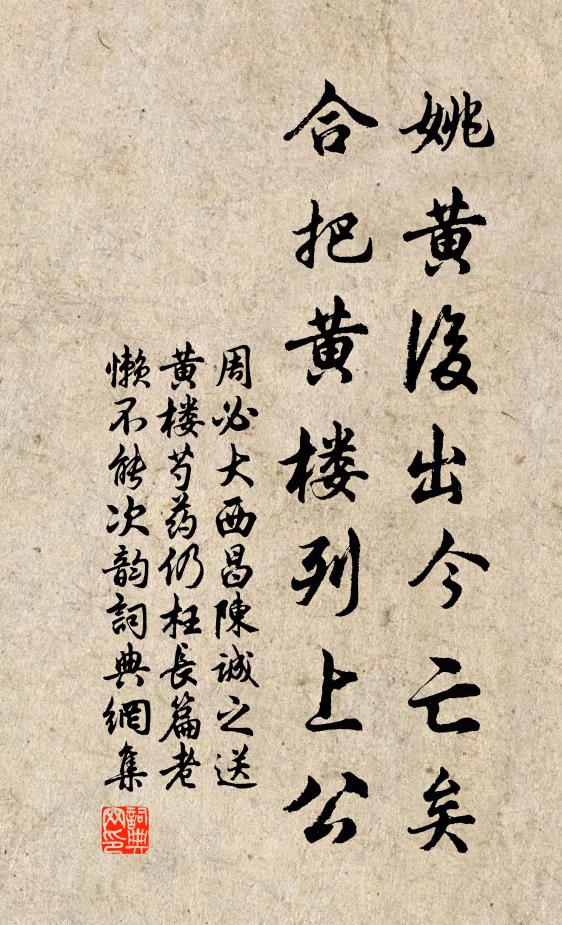 姚黄後出今亡矣
合把黄楼列上公
周必大西昌陳诚之送
黄楼芍药仍枉長篇老
懒不能次韵詞典網集
詞典网印